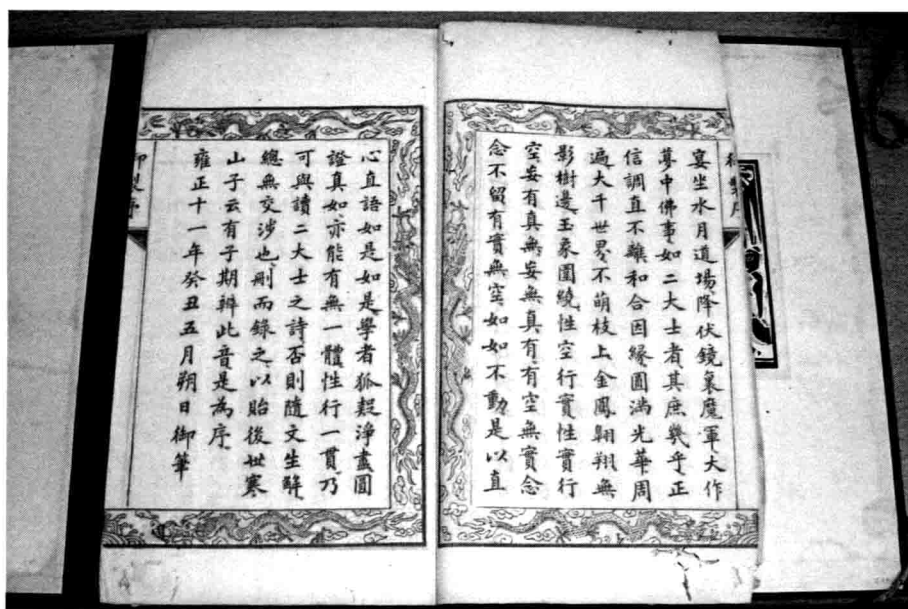 宴坐水月道場降伏鏡裏魔軍大作
夢中佛事如二大士者其庶幾乎正
信調直不離和合因緣圓滿光華周
遍大千世界不萌枝上金鳳翱翔無
影樹邊玉象圍繞性空行實性實行
空妄有真無妄無真有有空無實念
念不留有實無空如如不動是以直
心直語如是如是學者狐疑淨盡圓
證真如亦能有無一體性行一貫乃
可與讀二大士之詩否則隨文生解
總無交涉也刪而錄之以貽後世寒
山子云有子期辨此音是為序
雍正十一年癸丑五月朔日御筆
御製序